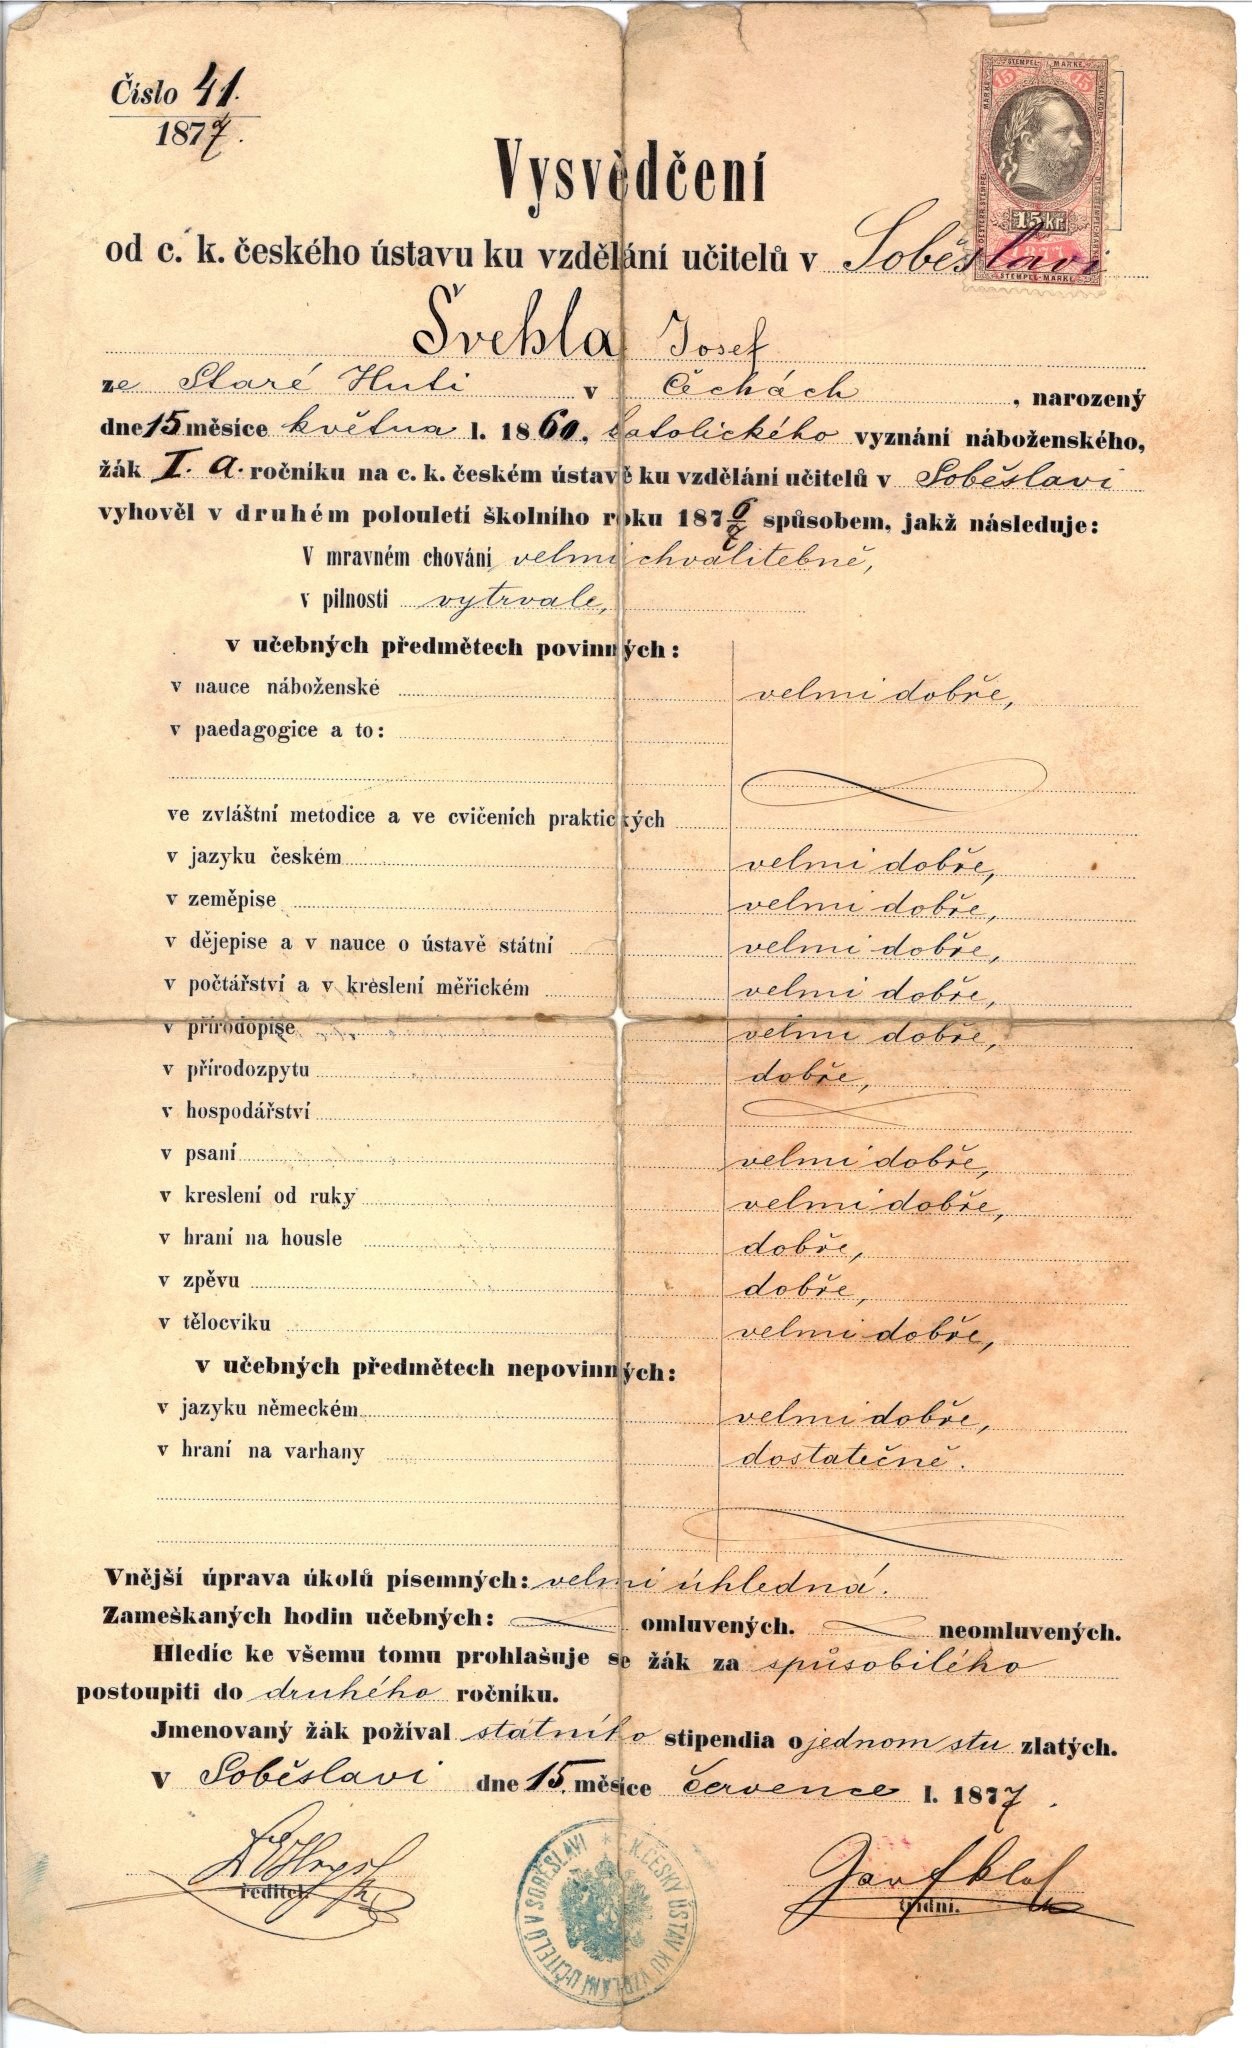 Číslo 41.
1877.
STEMPEL MARKE
15 15
15 kr
1877
STEMPEL-MARKE
Vysvědčení
od c. k. českého ústavu ku vzdělání učitelů v Soběslavi
Švehla Josef
ze Staré Huti v Čechách, narozený
dne 15 měsíce května l. 1860, katolického vyznání náboženského,
žák I. a. ročníku na c. k. českém ústavě ku vzdělání učitelů v Soběslavi
vyhověl v druhém polouletí školního roku 187 6/7 spůsobem, jakž následuje:
V mravném chování velmi chvalitebně,
v pilnosti vytrvale,
v učebných předmětech povinných:
v nauce náboženské velmi dobře,
v paedagogice a to:
ve zvláštní metodice a ve cvičeních praktických
v jazyku českém velmi dobře,
v zeměpise velmi dobře,
v dějepise a v nauce o ústavě státní velmi dobře,
v počtářství a v kreslení měřickém velmi dobře,
v přírodopise velmi dobře,
v přírodozpytu dobře,
v hospodářství
v psaní velmi dobře,
v kreslení od ruky velmi dobře,
v hraní na housle dobře,
v zpěvu dobře,
v tělocviku velmi dobře,
v učebných předmětech nepovinných:
v jazyku německém velmi dobře,
v hraní na varhany dostatečně.
Vnější úprava úkolů písemných: velmi úhledná.
Zameškaných hodin učebných: omluvených. neomluvených.
Hledíc ke všemu tomu prohlašuje se žák za spůsobilého
postoupiti do druhého ročníku.
Jmenovaný žák požíval státního stipendia o jednom stu zlatých.
V Soběslavi dne 15. měsíce července l. 1877.
ředitel.
třídní.
C. K. ČESKÝ ÚSTAV KU VZDĚLÁNÍ UČITELŮ V SOBĚSLAVI